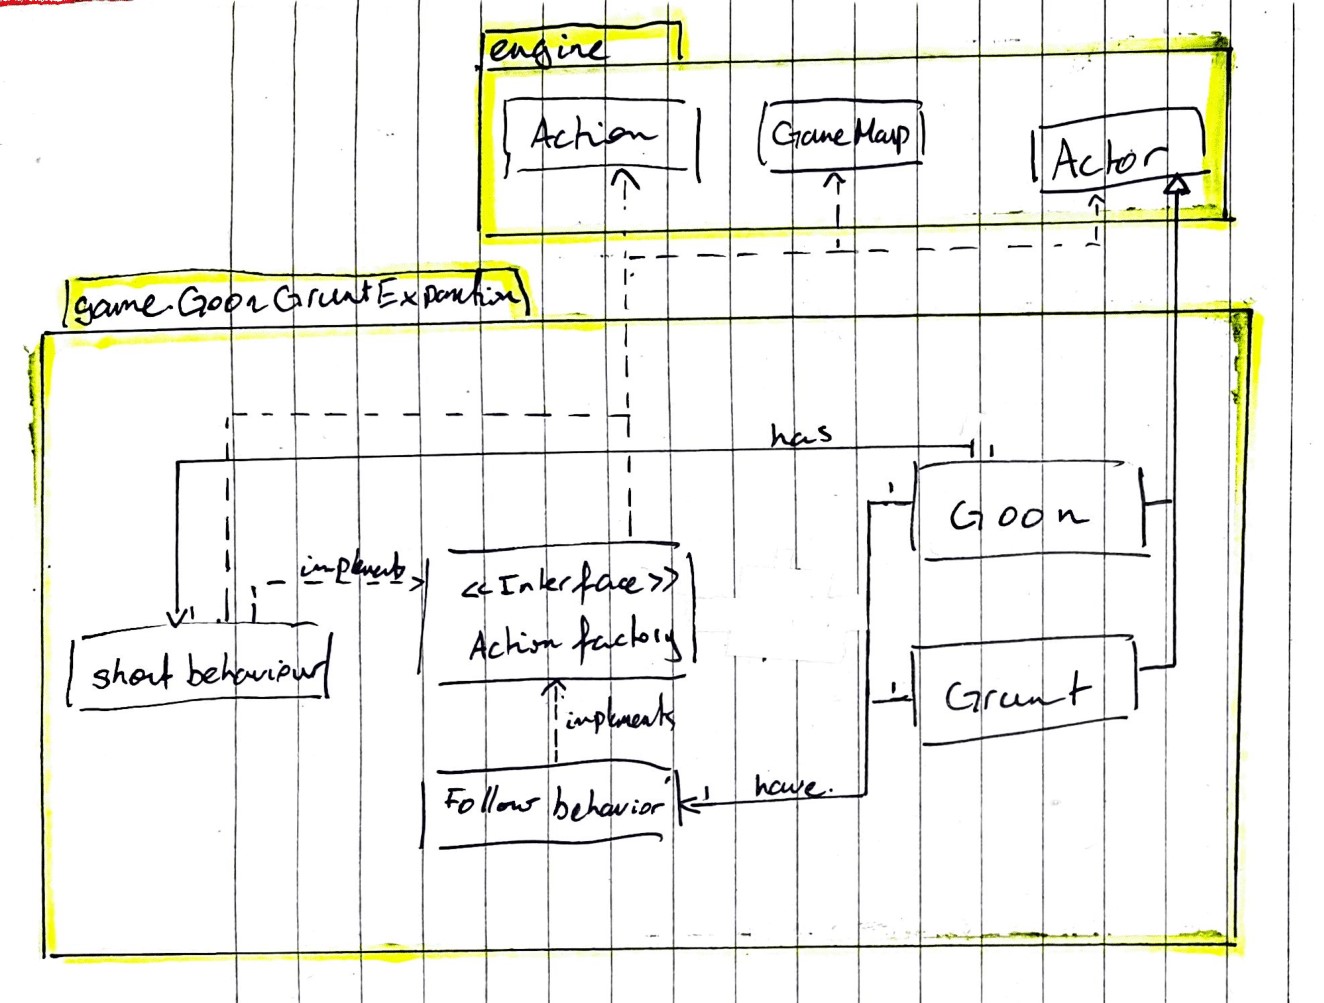 engine
Action
GameMap
Actor
game.GoonGruntExpanction
has
1
1
Goon
implements
1
<<Interface>>
Action factory
short behaviour
1
Grunt
implements
Follow behavior
1
have.